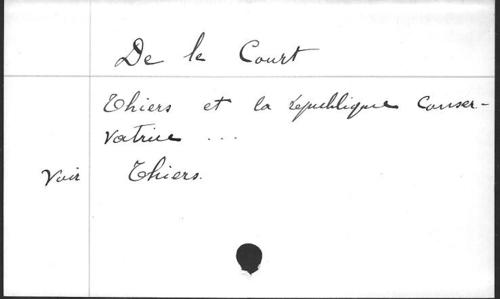 De le Court
Thiers et la république Conser-
vatrice ...
Voir Thiers.